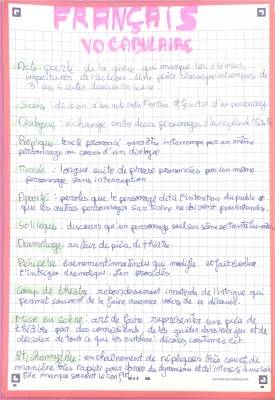 FRANÇAIS
VOCABULAIRE
Acte: partie de la pièce qui marque les éléments
importants de l'action. Une pièce classique
3 ou 5 actes
Scène: division d'un acte entre l'entrée et la sortie d'un personnage
Dialogue: échange entre deux personnages
Réplique: texte prononcé sans être interrompu par un même
personnage au cours d'un dialogue
Tirade: longue suite de phrases prononcées par un même
personnage sans interruption
Aparté: paroles que le personnage dit à l'intention du public et
que les autres personnages sur scène ne doivent pas entendre
Soliloque: discours qu'un personnage seul sur scène
Dramaturge: auteur de pièce de théâtre
Péripétie: évènement inattendu qui modifie et fait évoluer
l'intrigue dramatique.
Coup de théâtre: rebondissement inattendu de l'intrigue qui
permet souvent de la faire avancer
Mise en scène: art de faire représenter une pièce de
théâtre par des comédiens, de les guider dans leur jeu et de
décider de tout ce qui les entoure: décors costumes ect
Stichomythie: enchaînement de répliques très courtes de
manière très rapide pour donner du dynamisme et de l'intensité à une scène
Elle marque souvent le conflit